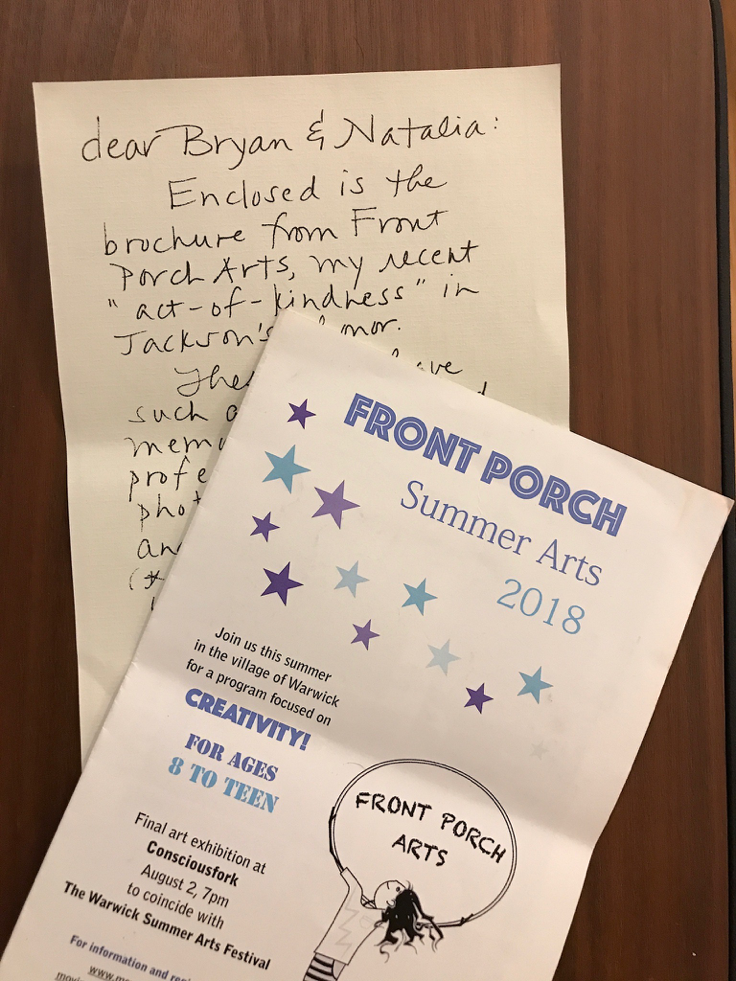 dear Bryan & Natalia:
Enclosed is the
brochure from Front
Porch Arts, my recent
"act-of-kindness" in
Jackson's
such
FRONT PORCH
Summer Arts
2018
Join us this summer
in the village of Warwick
for a program focused on
CREATIVITY!
FOR AGES
8 TO TEEN
Final art exhibition at
Consciousfork
August 2, 7pm
to coincide with
The Warwick Summer Arts Festival
For information and
FRONT PORCH
ARTS